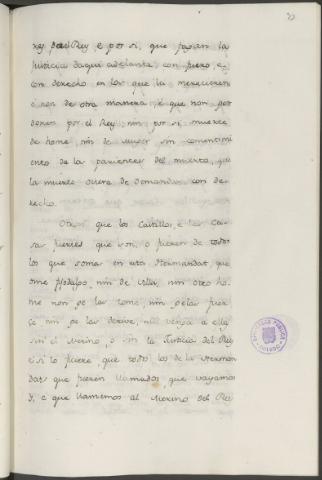 nes por el Rey, e por si, que fagan la
justicia daqui adelante, con fuero, e
con derecho en los que la merecieren
e non de otra manera, e que non per
donen por el Rey, nin por si muerte
de home, nin de muger sin consentimi
ento de los parientes del muerto, que
la muerte oviere de demandar con de
recho.
Otrosi que los Castillos, e las Ca
sas fuertes que son, o fueren de todos
los que somos en esta Hermandat, que
ome fijodalgo, nin de villa, nin otro ho
me non se las tome, nin gelas fuer
ce nin ge las derive, nin venga a ellas
sin el Merino, o sin la Justicia del Rey
e si lo ficiere que todos los de la Herman
dat que fueren llamados, que vayamos
y, e que llamemos al Merino del Rei